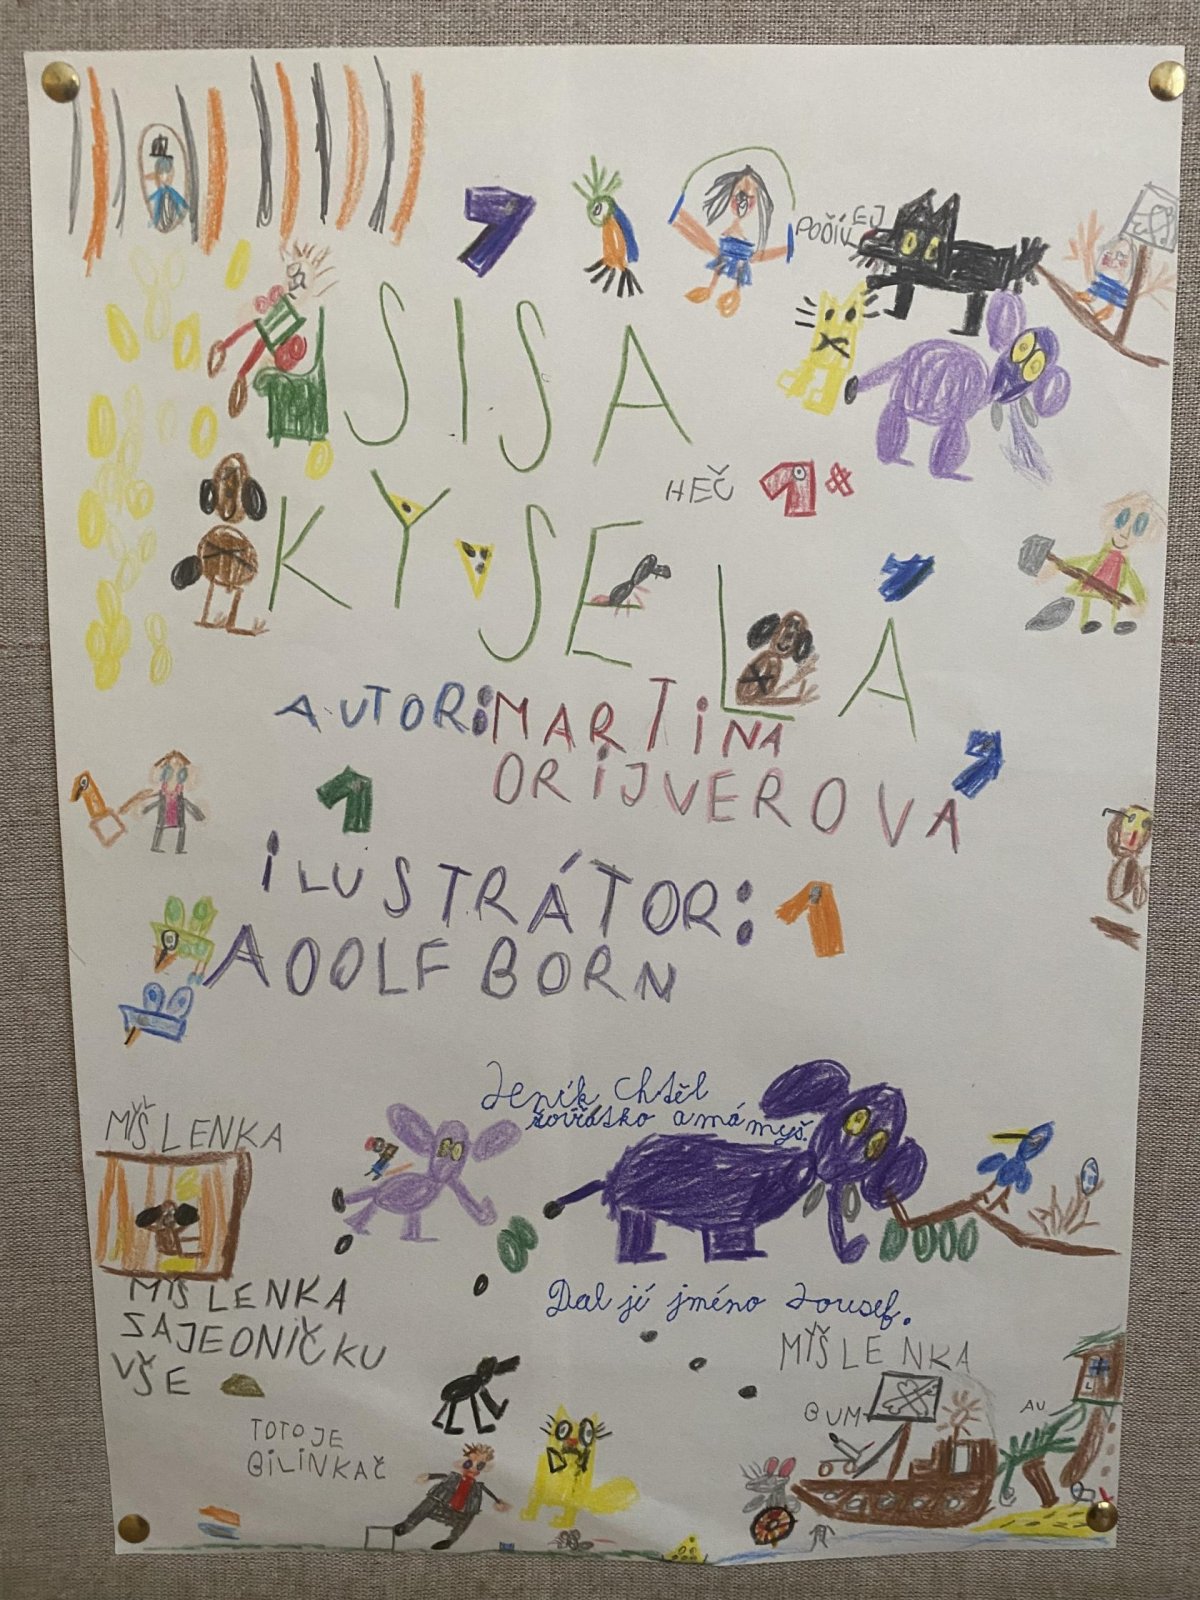 SISA
KYSELA
HEČ
AUTOR: MARTINA
DRIJVEROVA
ILUSTRÁTOR:
ADOLF BORN
Jeník chtěl
zvířátko a má myš.
MYŠLENKA
MYŠLENKA
ZAJEDNIČKU
VŠE
Dal jí jméno Jousef.
MYŠLENKA
BUM
AU
TOTO JE
BILINKAČ